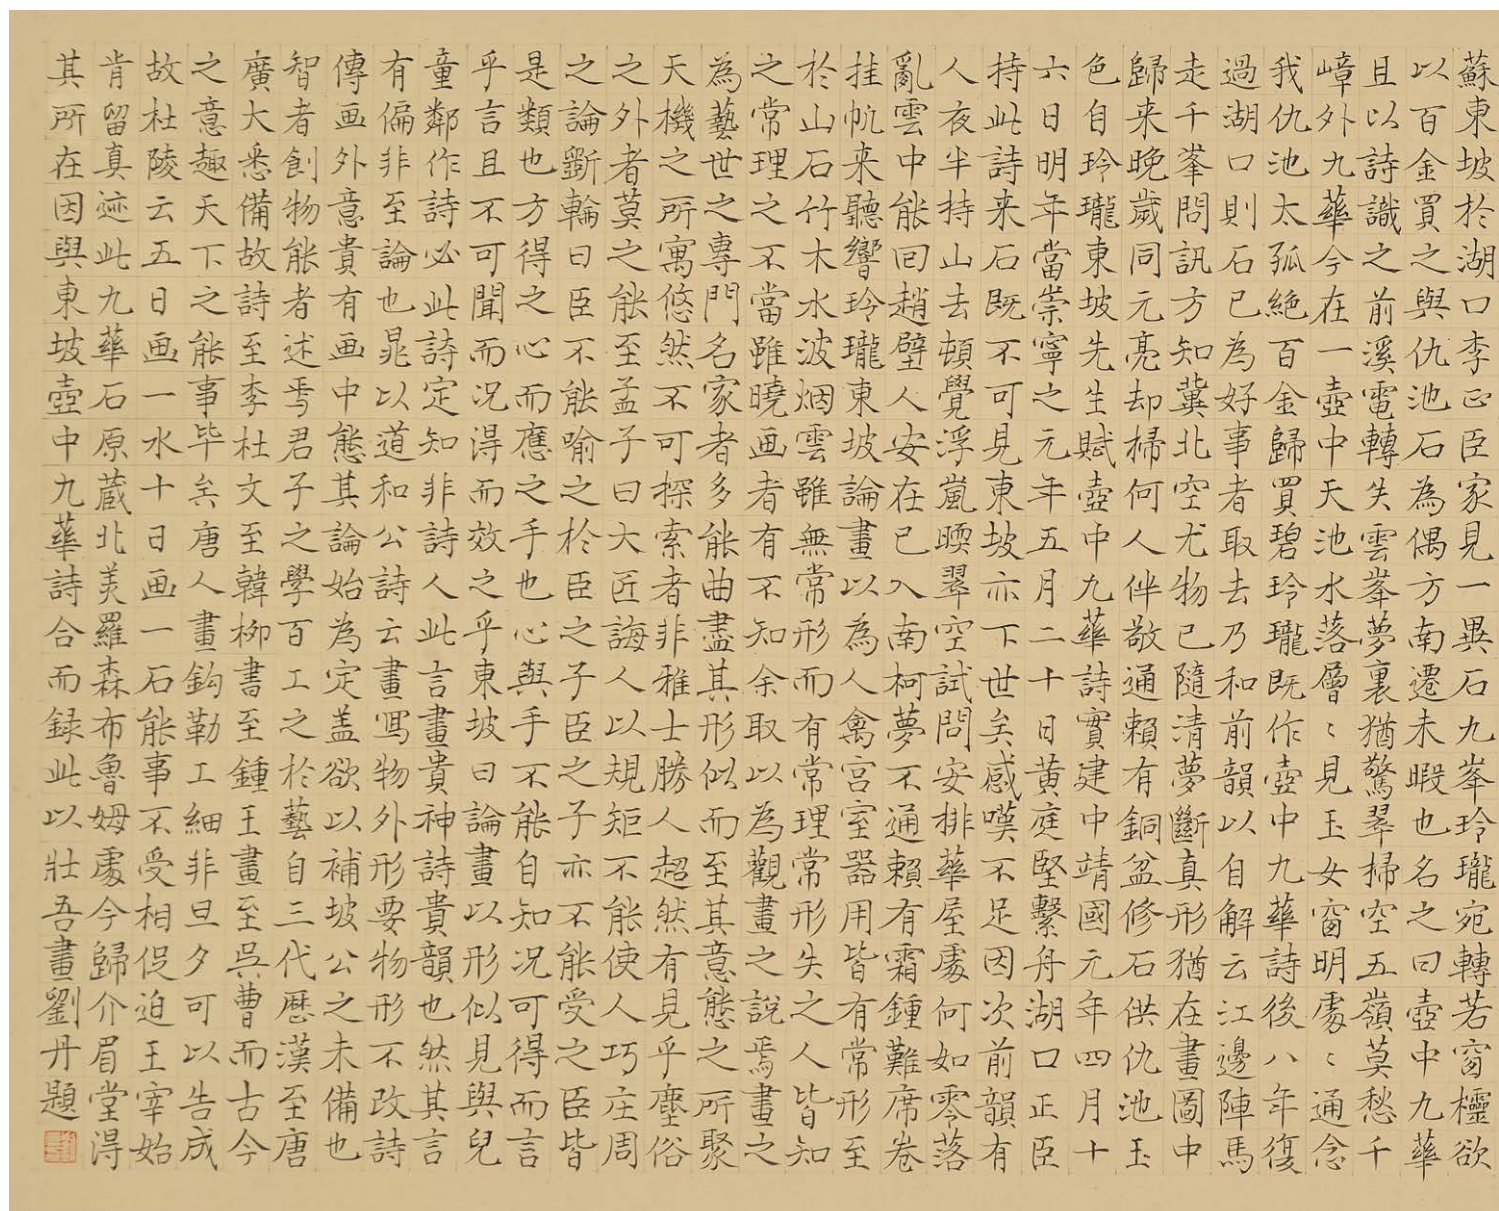 蘇東坡於湖口李正臣家見一異石九峯玲瓏宛轉若窗欞欲
以百金買之與仇池石為偶方南遷未暇也名之曰壺中九華
且以詩識之前溪電轉失雲峯夢裏猶驚翠掃空五嶺莫愁千
嶂外九華今在一壺中天池水落層〻見玉女窗明處〻通念
我仇池太孤絕百金歸買碧玲瓏既作壺中九華詩後八年復
過湖口則石已為好事者取去乃和前韻以自解云江邊陣馬
走千峯問訊方知冀北空尤物已隨清夢斷真形猶在畫圖中
歸来晚歲同元亮却掃何人伴敬通賴有銅盆修石供仇池玉
色自玲瓏東坡先生賦壺中九華詩實建中靖國元年四月十
六日明年當崇寧之元年五月二十日黃庭堅繫舟湖口正臣
持此詩来石既不可見東坡亦下世矣感嘆不足因次前韻有
人夜半持山去頓覺浮嵐暖翠空試問安排華屋處何如零落
亂雲中能回趙璧人安在已入南柯夢不通賴有霜鍾難席卷
挂帆来聽響玲瓏東坡論畫以為人禽宮室器用皆有常形至
於山石竹木水波烟雲雖無常形而有常理常形失之人皆知
之常理之不當雖曉画者有不知余取以為觀畫之說焉畫之
為藝世之專門名家者多能曲盡其形似而至其意態之所聚
天機之所寓悠然不可探索者非雅士勝人超然有見乎塵俗
之外者莫之能至孟子曰大匠誨人以規矩不能使人巧庄周
之論斲輪曰臣不能喻之於臣之子臣之子亦不能受之臣皆
是類也方得之心而應之手也心與手不能自知况可得而言
乎言且不可聞而况得而效之乎東坡曰論畫以形似見與兒
童鄰作詩必此詩定知非詩人此言畫貴神詩貴韻也然其言
有偏非至論也晁以道和公詩云畫寫物外形要物形不改詩
傳画外意貴有画中態其論始為定盖欲以補坡公之未備也
智者創物能者述焉君子之學百工之於藝自三代歷漢至唐
廣大悉備故詩至李杜文至韓柳書至鍾王畫至吳曹而古今
之意趣天下之能事毕矣唐人畫鈎勒工細非旦夕可以告成
故杜陵云五日画一水十日画一石能事不受相促迫王宰始
肯留真迹此九華石原藏北美羅森布魯姆處今歸介眉堂得
其所在因與東坡壺中九華詩合而録此以壯吾畫劉丹題